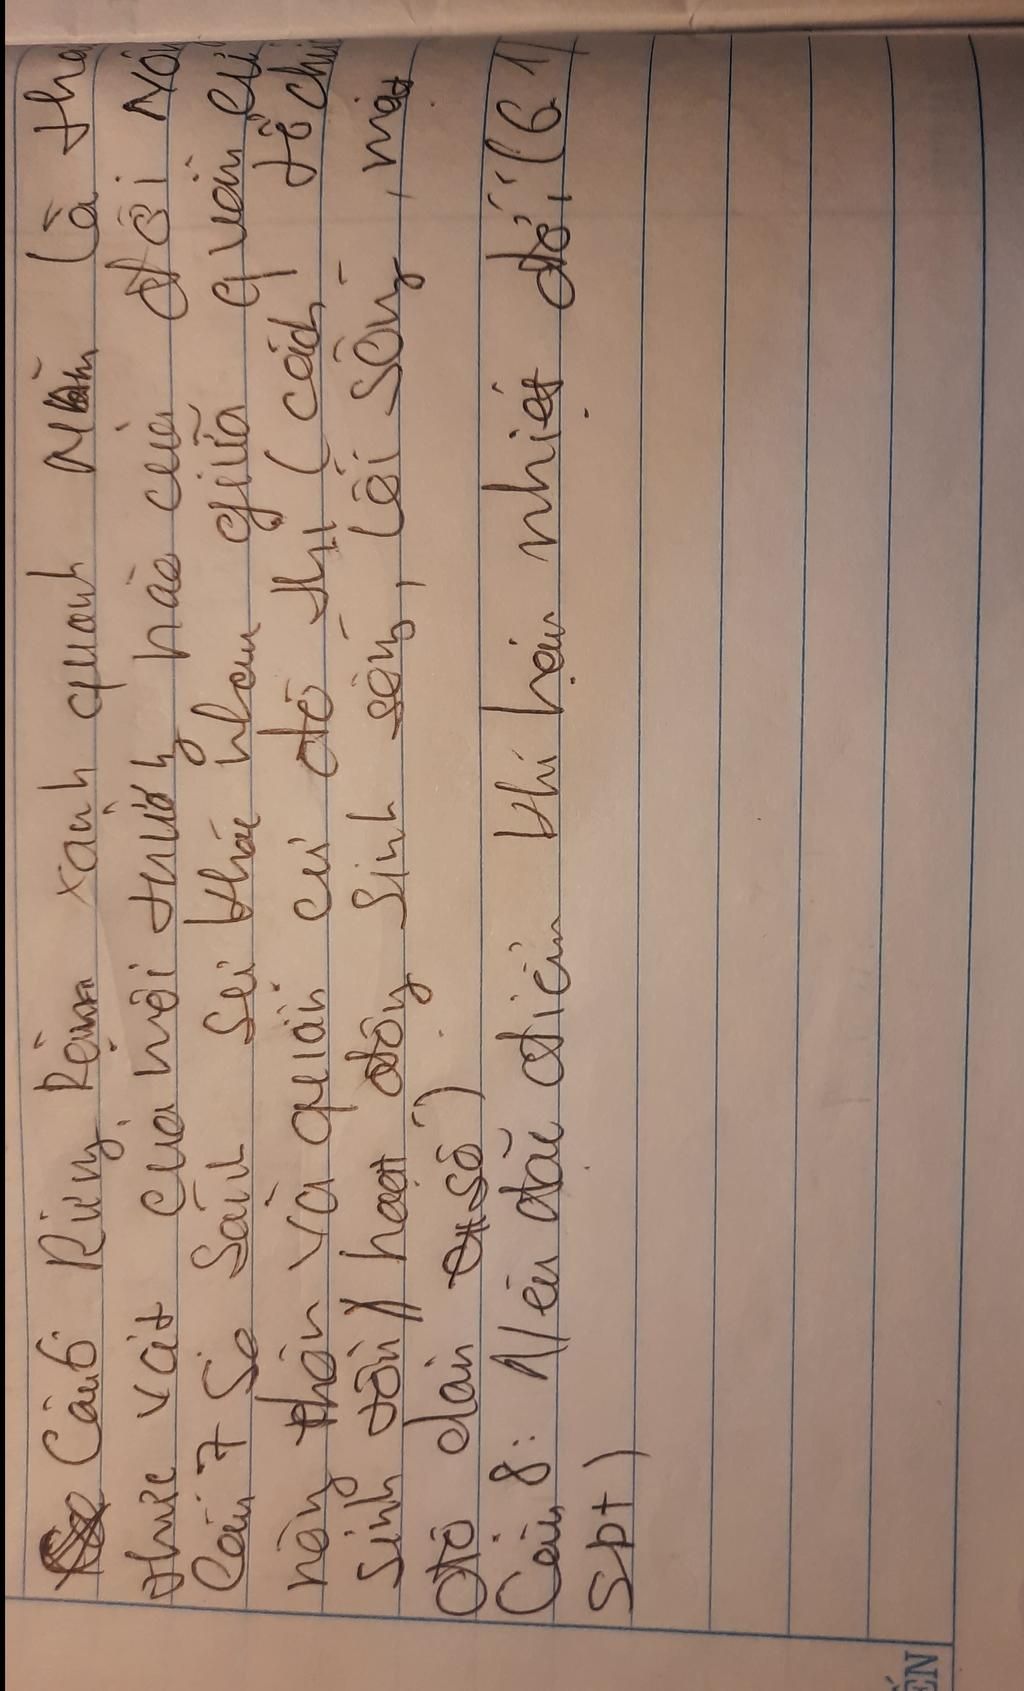 Câu 6 Rừng Rậm xanh quanh năm là
thực vật của môi trường nào của đới
Câu 7 So Sánh sự khác nhau giữa quần cư
nông thôn và quần cư đô thị (cách tổ
sinh sống / hoạt động sinh sống, lối sống, mật
độ dân số)
Câu 8: Nêu đặc điểm khí hậu nhiệt đới, (6.1)
SPT)
ẾN